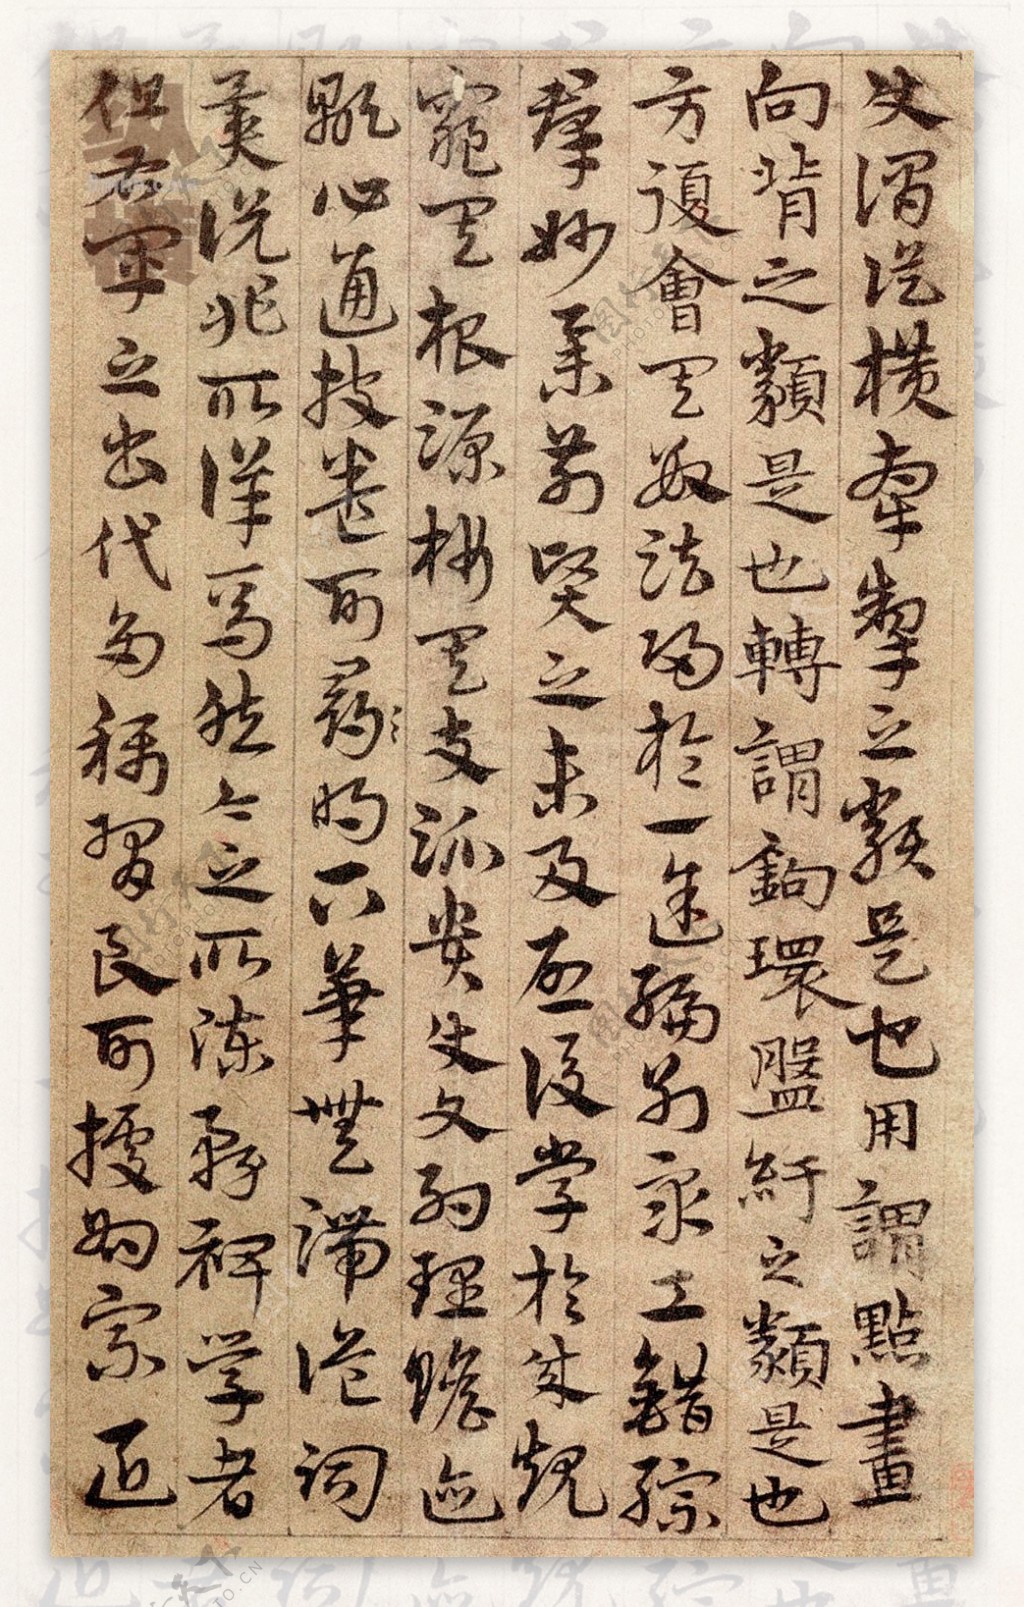 使謂縱橫牽掣之類是也用謂點畫
向背之類是也轉謂鉤環盤紆之類是也
方復會其數法歸於一途編列衆工錯綜
羣妙舉前賢之未及啓後學於成規
窺其根源析其支派貴使文約理贍迹
顯心通披卷可明下筆無滯詭詞
異說非所詳焉然今之所陳務裨學者
但右軍之書代多稱習良可據爲宗匠